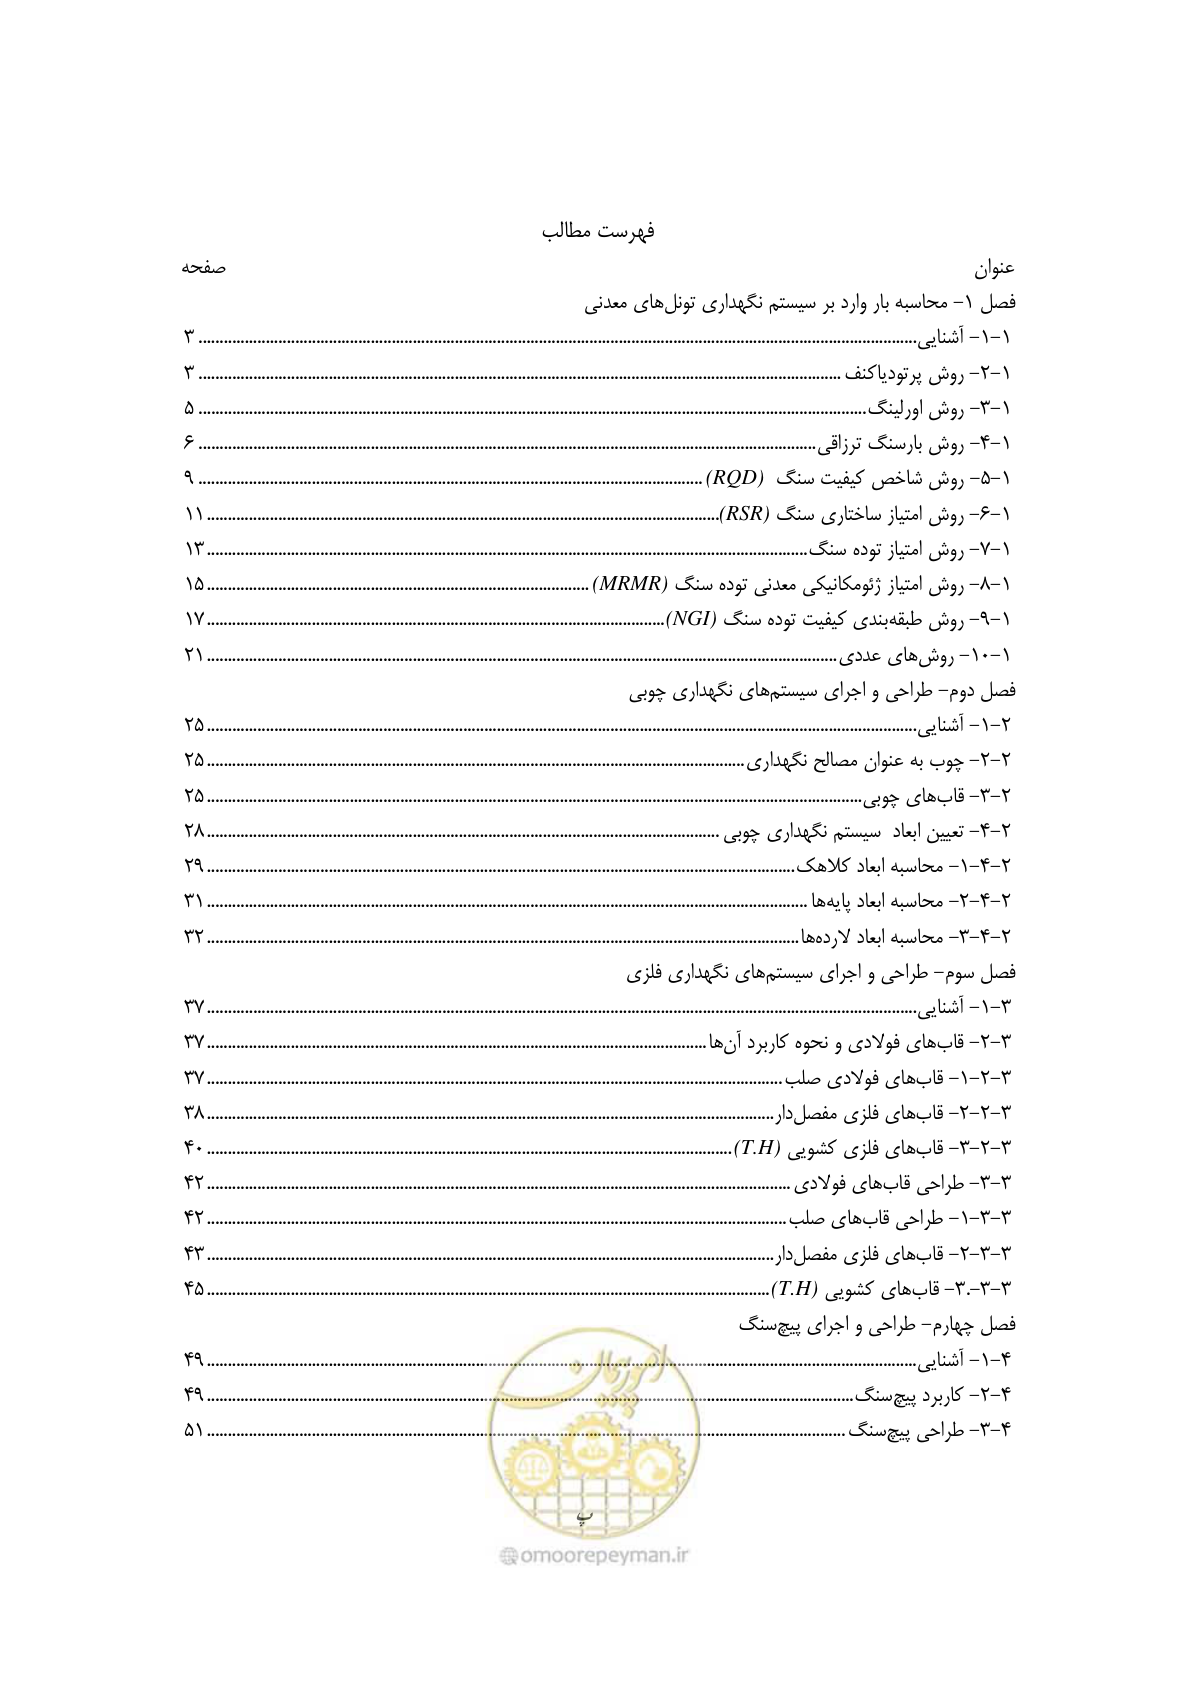 فهرست مطالب
عنوان صفحه
فصل ۱– محاسبه بار وارد بر سیستم نگهداری تونل‌های معدنی
۱–۱– آشنایی ........ ۳
۱–۲– روش پرتودیاکنف ........ ۳
۱–۳– روش اورلینگ ........ ۵
۱–۴– روش بارسنگ ترزاقی ........ ۶
۱–۵– روش شاخص کیفیت سنگ (RQD) ........ ۹
۱–۶– روش امتیاز ساختاری سنگ (RSR) ........ ۱۱
۱–۷– روش امتیاز توده سنگ ........ ۱۳
۱–۸– روش امتیاز ژئومکانیکی معدنی توده سنگ (MRMR) ........ ۱۵
۱–۹– روش طبقه‌بندی کیفیت توده سنگ (NGI) ........ ۱۷
۱–۱۰– روش‌های عددی ........ ۲۱
فصل دوم– طراحی و اجرای سیستم‌های نگهداری چوبی
۲–۱– آشنایی ........ ۲۵
۲–۲– چوب به عنوان مصالح نگهداری ........ ۲۵
۲–۳– قاب‌های چوبی ........ ۲۵
۲–۴– تعیین ابعاد سیستم نگهداری چوبی ........ ۲۸
۲–۴–۱– محاسبه ابعاد کلاهک ........ ۲۹
۲–۴–۲– محاسبه ابعاد پایه‌ها ........ ۳۱
۲–۴–۳– محاسبه ابعاد لارده‌ها ........ ۳۲
فصل سوم– طراحی و اجرای سیستم‌های نگهداری فلزی
۳–۱– آشنایی ........ ۳۷
۳–۲– قاب‌های فولادی و نحوه کاربرد آن‌ها ........ ۳۷
۳–۲–۱– قاب‌های فولادی صلب ........ ۳۷
۳–۲–۲– قاب‌های فلزی مفصل‌دار ........ ۳۸
۳–۲–۳– قاب‌های فلزی کشویی (T.H) ........ ۴۰
۳–۳– طراحی قاب‌های فولادی ........ ۴۲
۳–۳–۱– طراحی قاب‌های صلب ........ ۴۲
۳–۳–۲– قاب‌های فلزی مفصل‌دار ........ ۴۳
۳–۳–.۳– قاب‌های کشویی (T.H) ........ ۴۵
فصل چهارم– طراحی و اجرای پیچ‌سنگ
۴–۱– آشنایی ........ ۴۹
۴–۲– کاربرد پیچ‌سنگ ........ ۴۹
۴–۳– طراحی پیچ‌سنگ ........ ۵۱
امور پیمان
پ
@omoorepeyman.ir